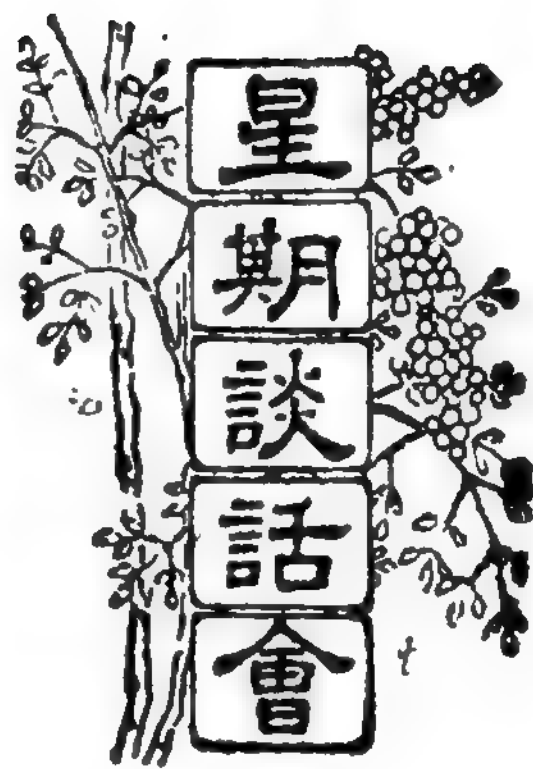 星期談話會